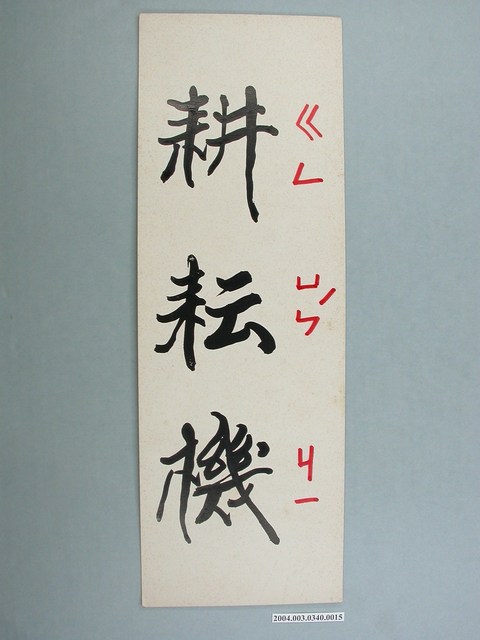 耕耘機
ㄍㄥ ㄩㄣˊ ㄐㄧ
2004.003.0340.0015